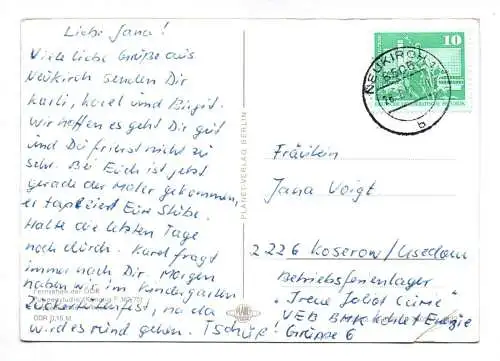 Liebe Jana!
Viele liebe Grüße aus
Neukirch senden Dir
Karli, Karel und Birgit.
Wir hoffen es geht Dir gut
und Du frierst nicht zu
sehr. Bei Euch ist jetzt
gerade der Maler gekommen,
er tapeziert Eure Stube.
Halte die letzten Tage
noch durch. Karel fragt
immer nach Dir. Morgen
haben wir im Kindergarten
Zuckertütenfest, na da
wird es rund gehen. Tschüß!
Fernsehen der DDR
DDR 0,15 M
PLANET-VERLAG BERLIN
NEUKIRCH
b
10
DEUTSCHE DEMOKRATISCHE REPUBLIK
Fräulein
Jana Voigt
2226 Koserow/Usedom
Betriebsferienlager
"Irene Joliot Curie"
VEB BMK Kohle + Energie
Gruppe 6